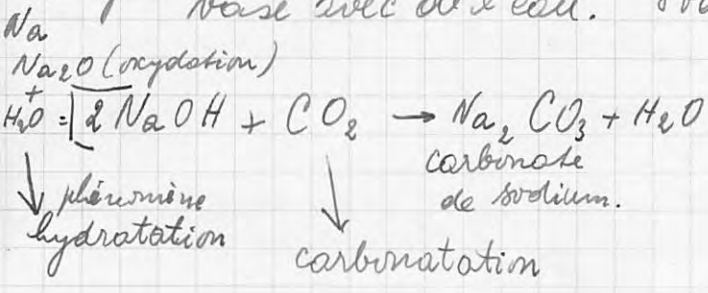 base avec de l'eau.
Na
Na2O (oxydation)
+
H2O = 2 NaOH + CO2 → Na2 CO3 + H2O
carbonate
de sodium.
phénomène
hydratation
carbonatation